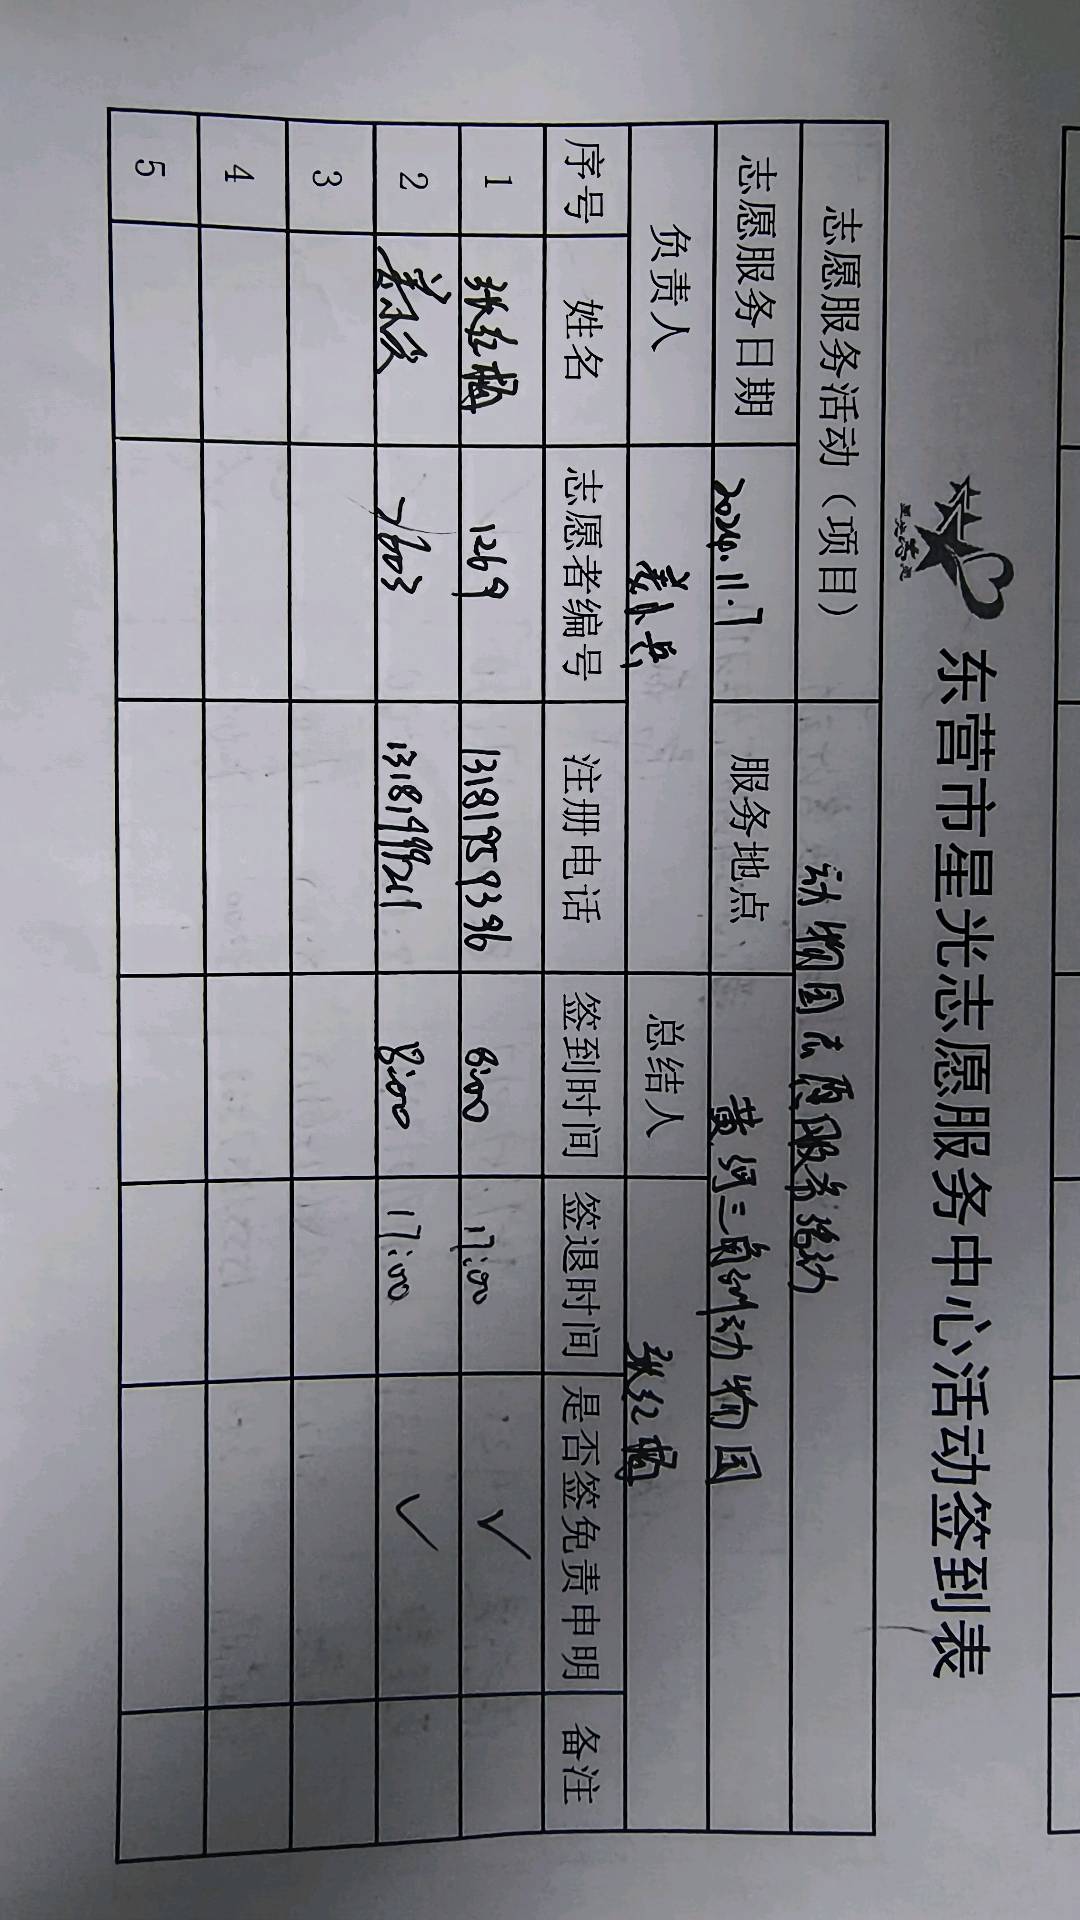 东营市星光志愿服务中心活动签到表
志愿服务活动（项目） 动物园志愿服务活动
志愿服务日期 2024.11.7 服务地点 黄河三角洲动物园
负责人 总结人 张红梅
序号 姓名 志愿者编号 注册电话 签到时间 签退时间 是否签免责申明 备注
1 张红梅 1269 13181959396 8:00 17:00 ✓
2 7603 8:00 17:00 ✓
3
4
5